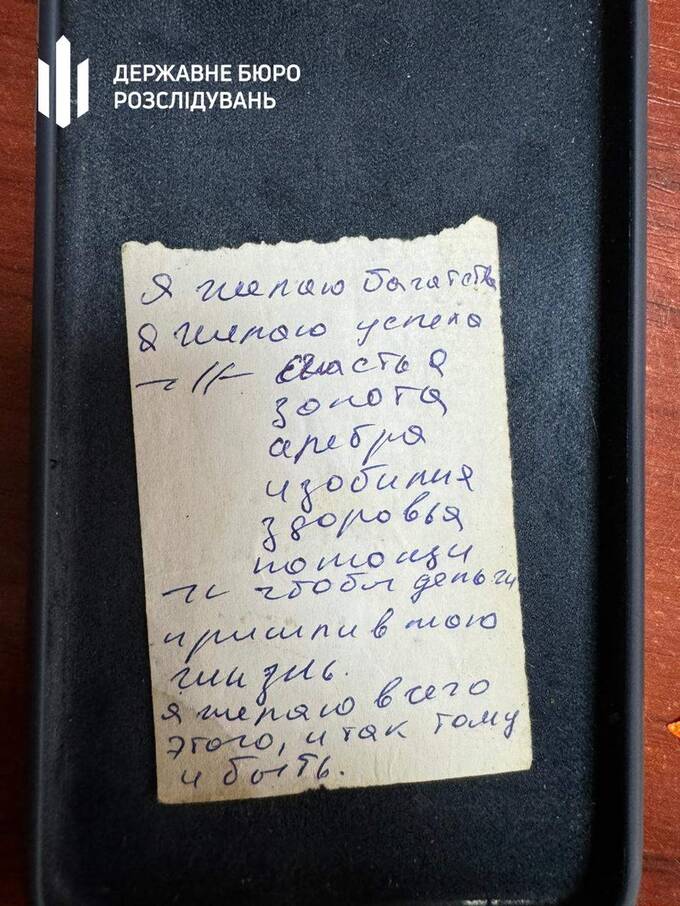 ДЕРЖАВНЕ БЮРО
РОЗСЛІДУВАНЬ
Я желаю багатства
Я желаю успеха
-//- счастья
золота
сребра
изобилия
здоровья
помощи
-//- чтобы деньги
пришли в мою
жизнь.
Я желаю всего
этого, и так тому
и быть.